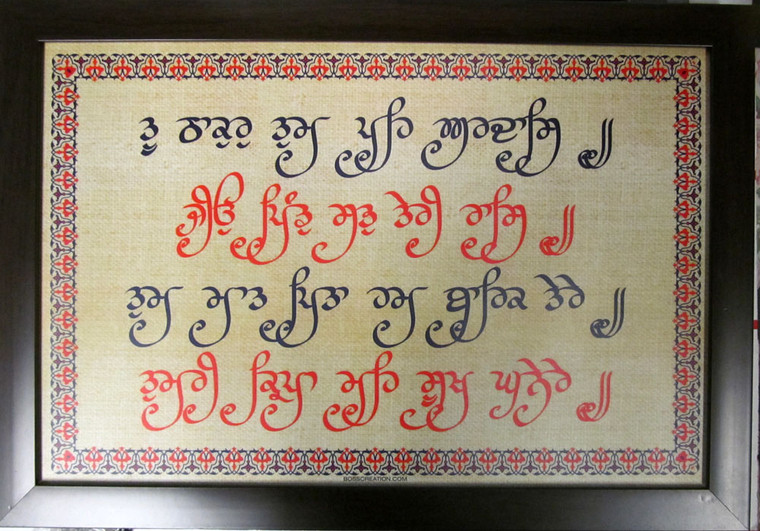 ਤੂ ਠਾਕੁਰੁ ਤੁਮ ਪਹਿ ਅਰਦਾਸਿ ॥
ਜੀਉ ਪਿੰਡੁ ਸਭੁ ਤੇਰੀ ਰਾਸਿ ॥
ਤੁਮ ਮਾਤ ਪਿਤਾ ਹਮ ਬਾਰਿਕ ਤੇਰੇ ॥
ਤੁਮਰੀ ਕ੍ਰਿਪਾ ਮਹਿ ਸੂਖ ਘਨੇਰੇ ॥
BOSSCREATION.COM